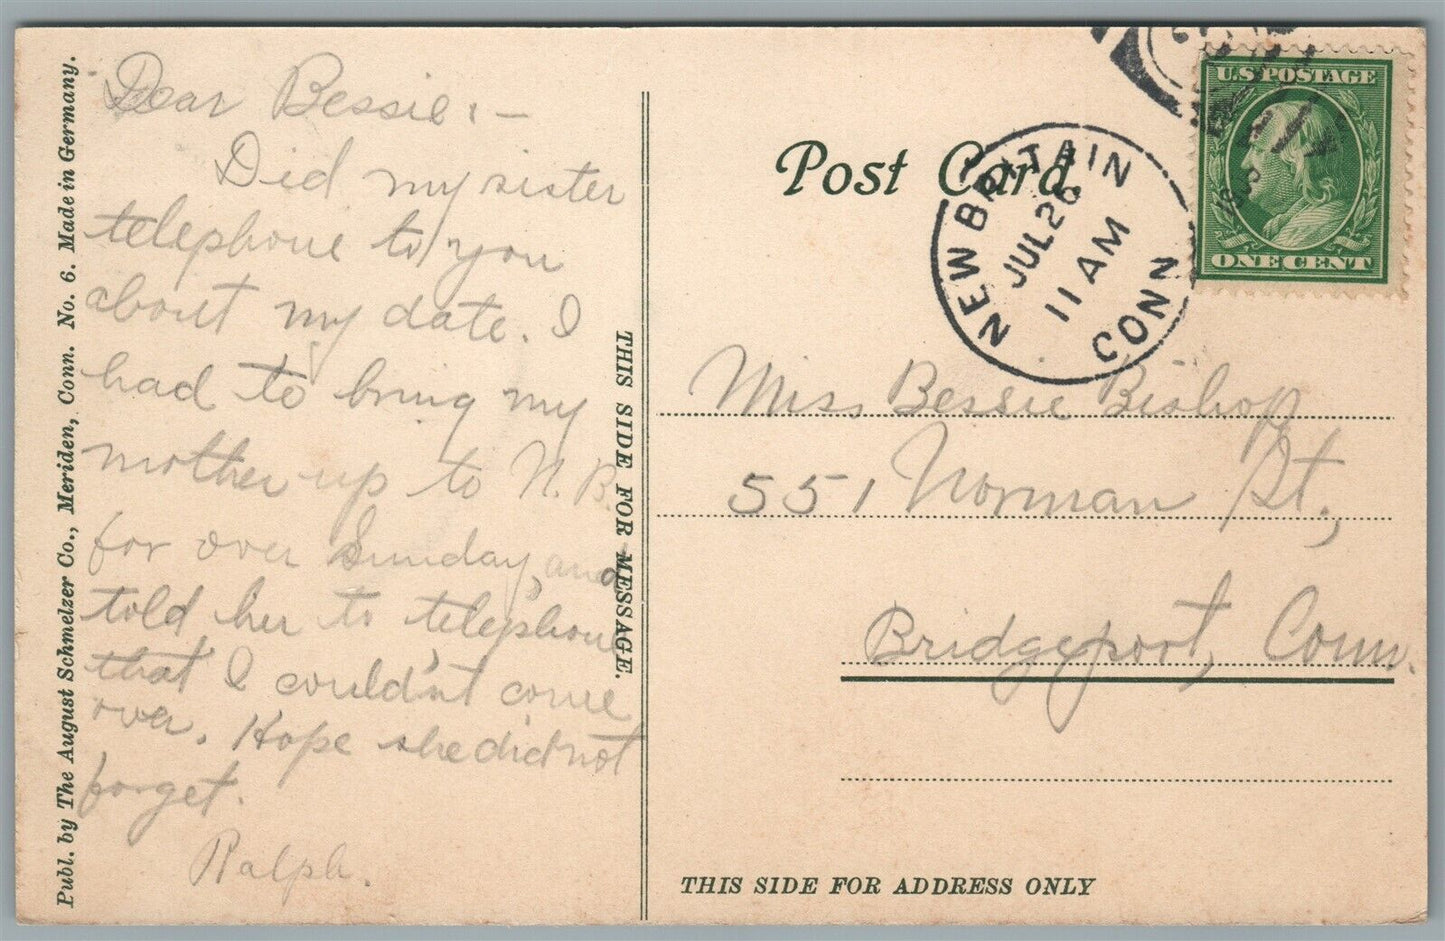 Publ. by The August Schmelzer Co., Meriden, Conn. No. 6. Made in Germany.
Dear Bessie:-
Did my sister
telephone to you
about my date. I
had to bring my
mother up to N.B.
for over Sunday, and
told her to telephone
that I couldn't come
over. Hope she did not
forget.
Ralph.
THIS SIDE FOR MESSAGE.
Post Card.
NEW BRITAIN
JUL 26
11 AM
CONN
U.S. POSTAGE
ONE CENT
Miss Bessie Bishop
551 Norman St.,
Bridgeport, Conn.
THIS SIDE FOR ADDRESS ONLY